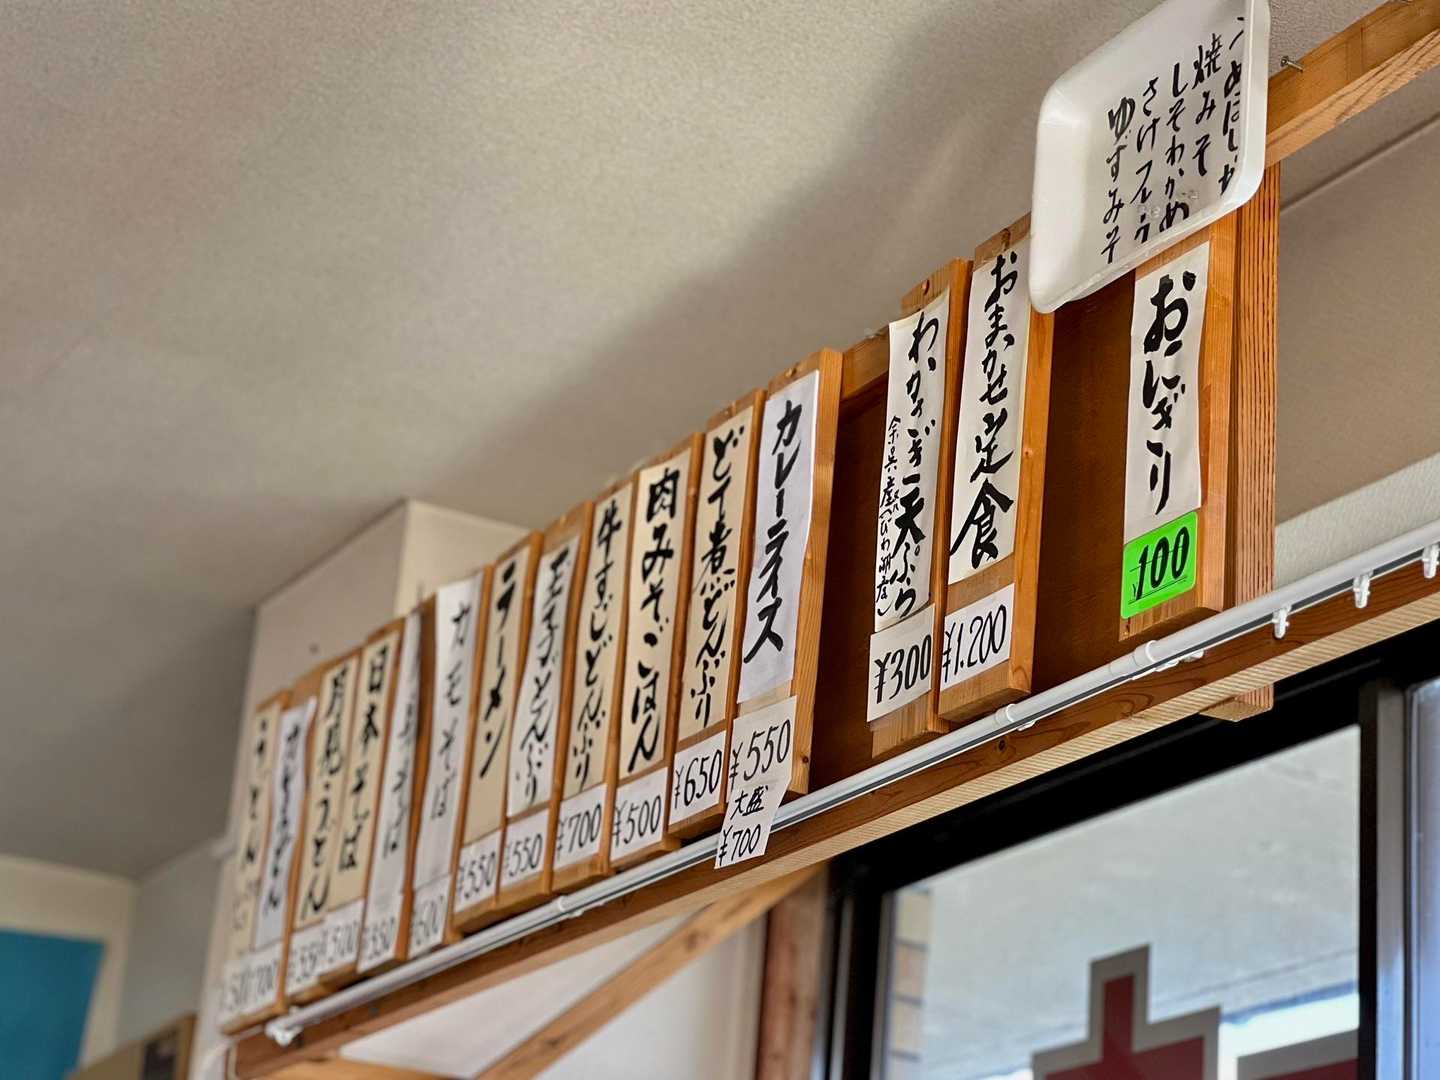 焼みそ
しそわかめ
さけフレーク
ゆずみそ
おにぎり
¥100
おまかせ定食
¥1.200
わかさぎ天ぷら
余呉産(びわ湖産)
¥300
カレーライス
¥550
大盛
¥700
どて煮どんぶり
¥650
肉みそごはん
¥500
牛すじどんぶり
¥700
玉子どんぶり
¥550
ラーメン
¥550
カモそば
日本そば
¥500
月見うどん
うどん